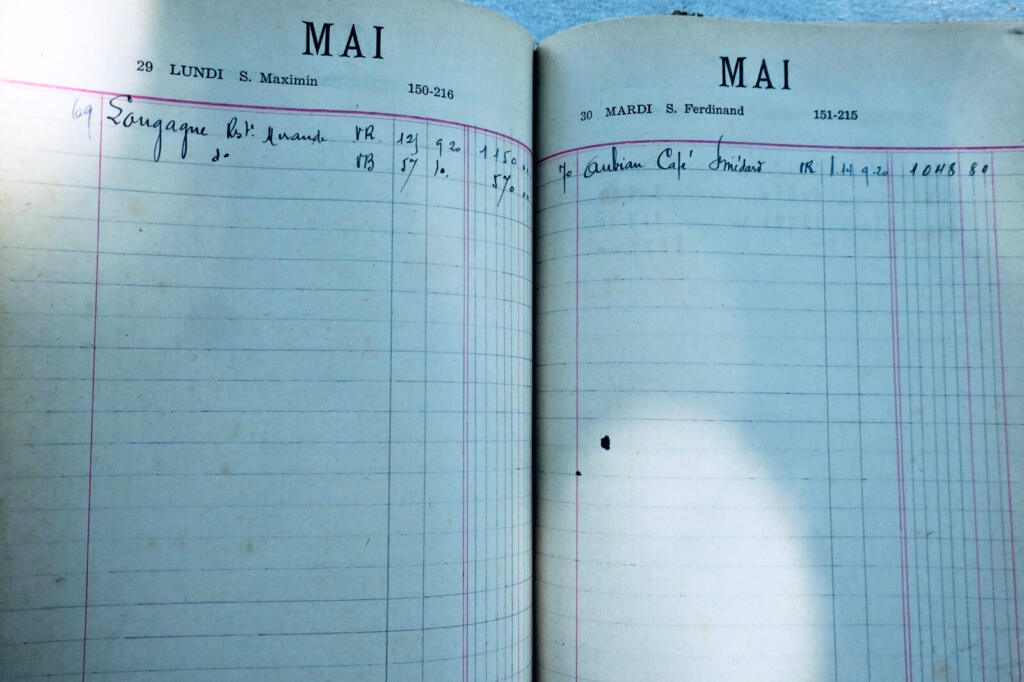 MAI
29 LUNDI S. Maximin 150-216
69 Longagne Rest. Mirande VR. 125 9 20 1150 ..
do VB 57 10. 570 ..
MAI
30 MARDI S. Ferdinand 151-215
70 Aubian Café VR 114 9.20 1048 80